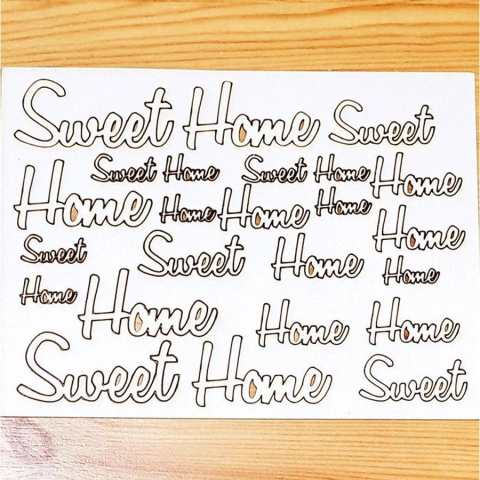 Sweet Home Sweet
Sweet Home Sweet Home Home
Home Home Home Home
Home
Sweet Sweet Home Home
Home Home Home Home
Sweet Home Sweet